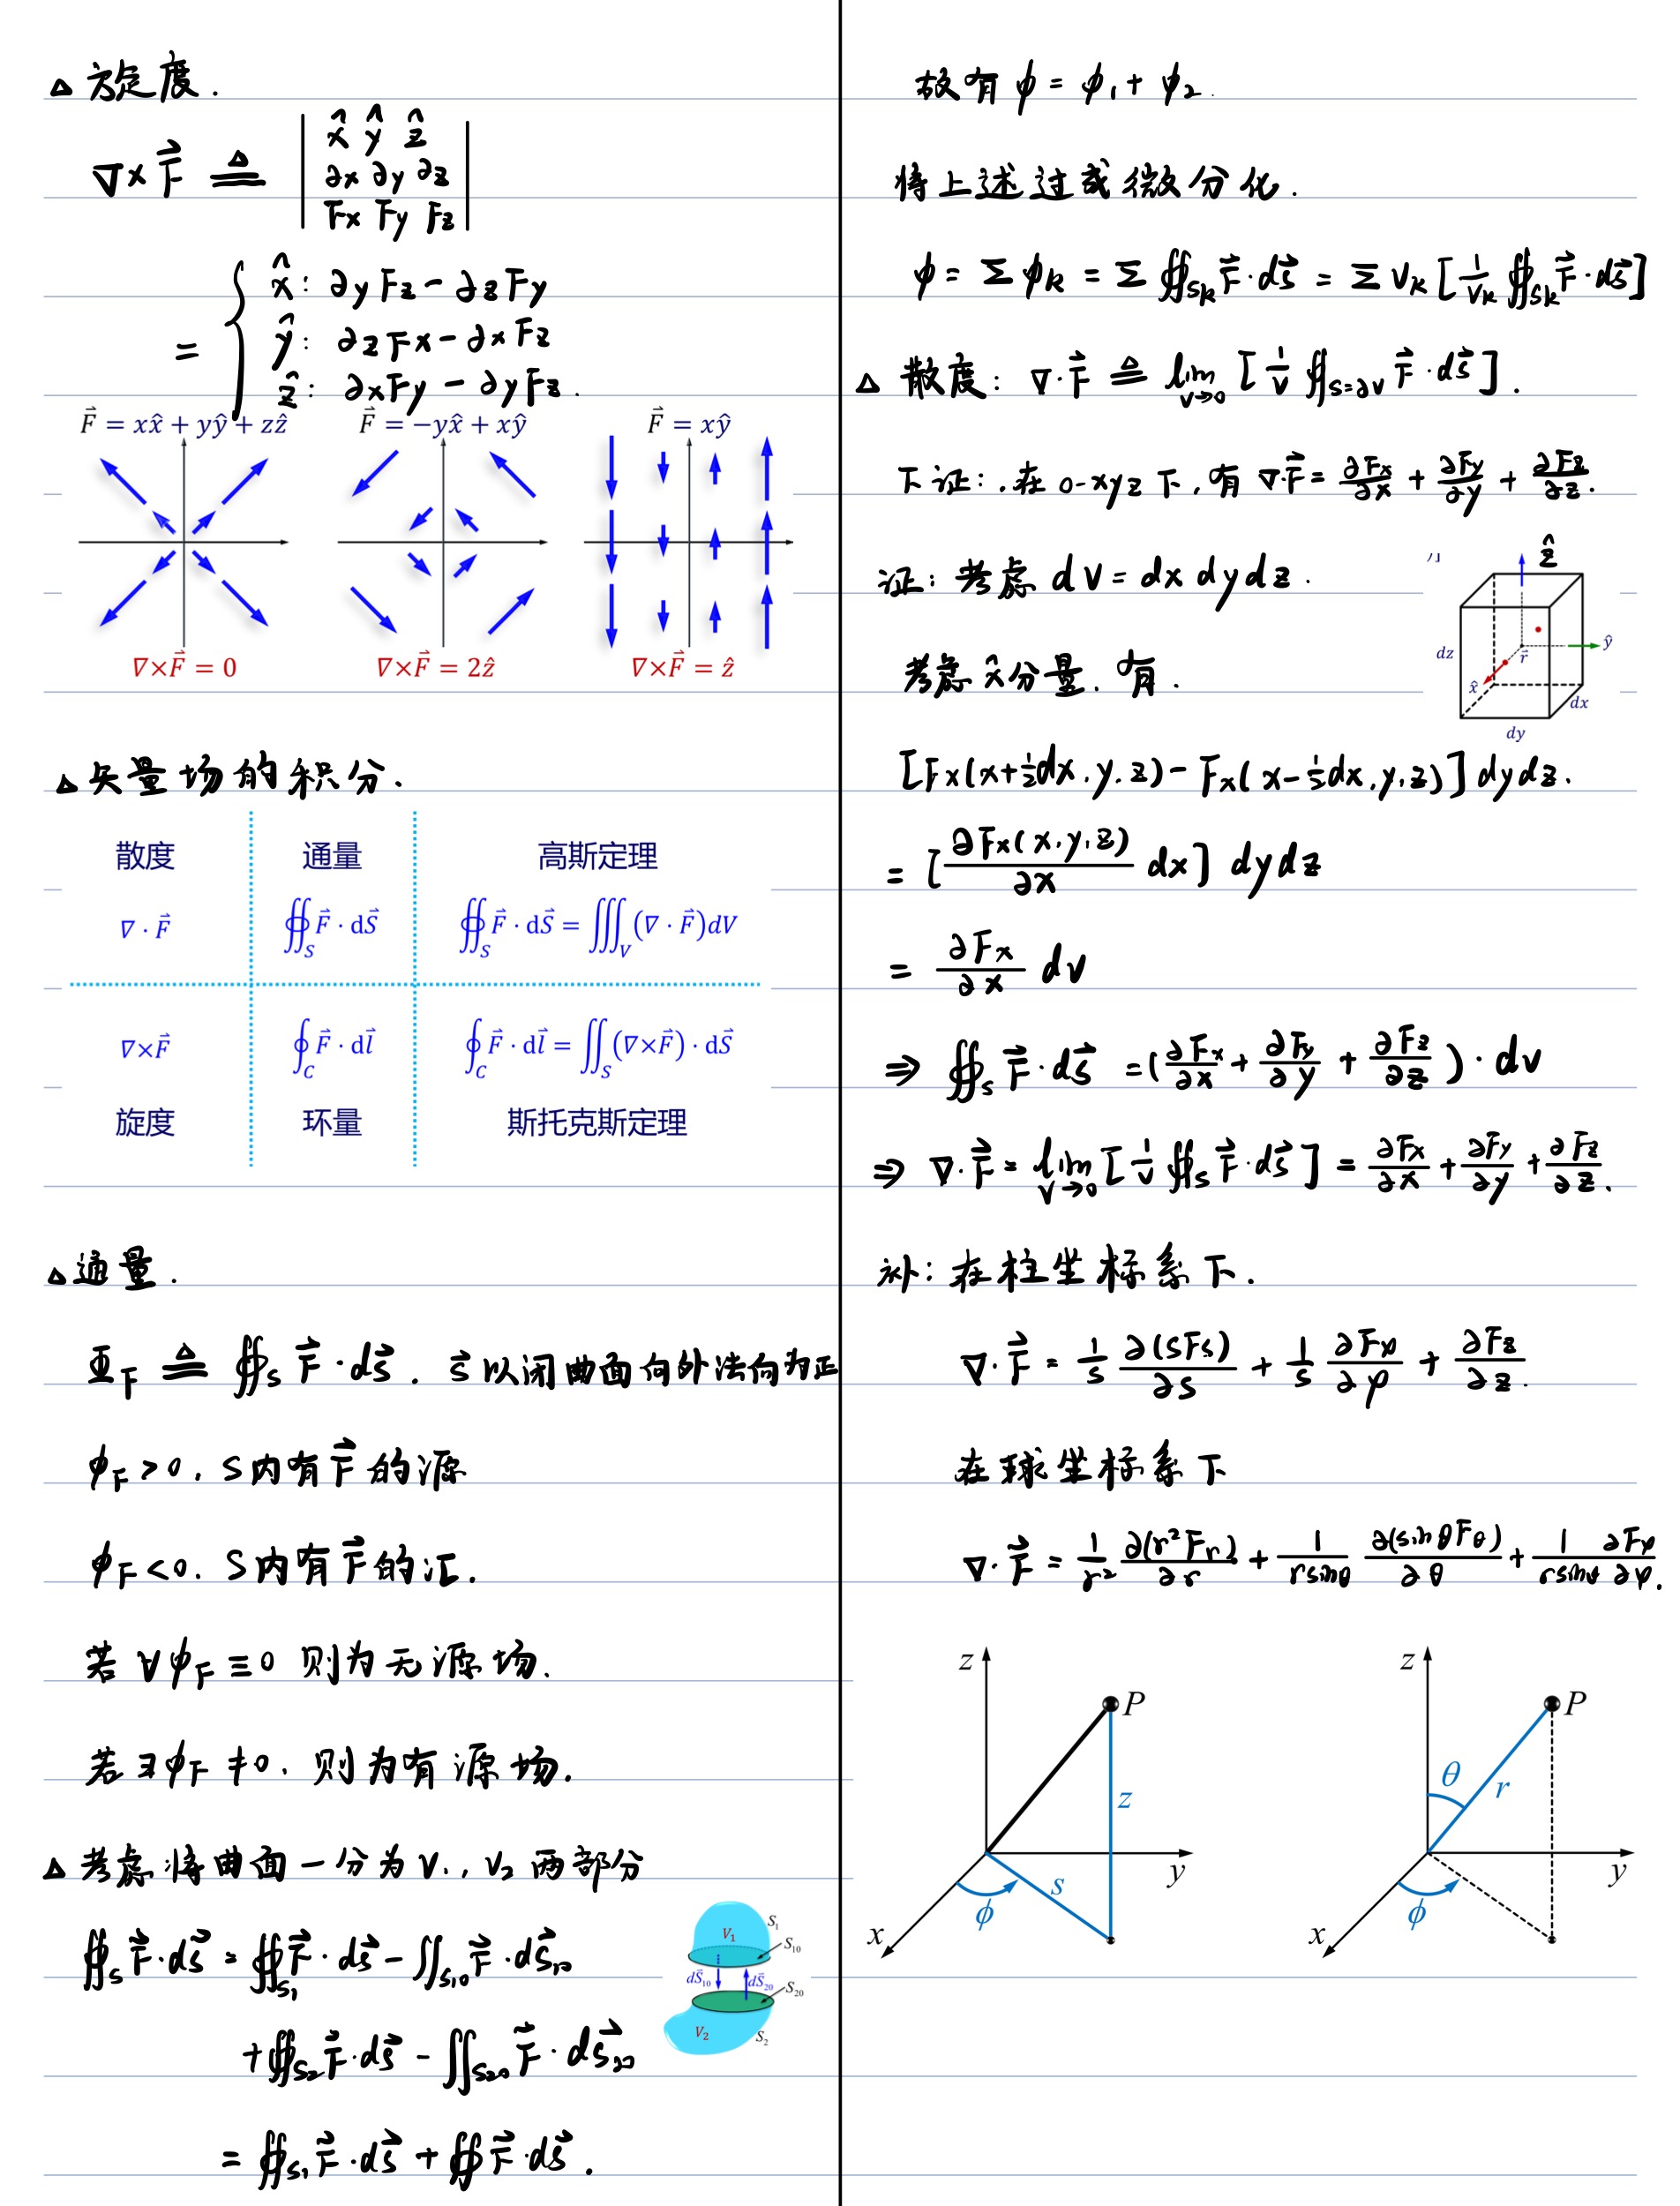 △ 旋度.
∇×F⃗ ≜ | x̂ ŷ ẑ
∂x ∂y ∂z
Fx Fy Fz |
= { x̂: ∂yFz - ∂zFy
ŷ: ∂zFx - ∂xFz
ẑ: ∂xFy - ∂yFz.
F⃗ = xx̂ + yŷ + zẑ F⃗ = -yx̂ + xŷ F⃗ = xŷ
∇×F⃗ = 0 ∇×F⃗ = 2ẑ ∇×F⃗ = ẑ
△ 矢量场的积分.
散度 通量 高斯定理
∇·F⃗ ∯_S F⃗·dS⃗ ∯_S F⃗·dS⃗ = ∭_V (∇·F⃗)dV
∇×F⃗ ∮_C F⃗·dl⃗ ∮_C F⃗·dl⃗ = ∬_S (∇×F⃗)·dS⃗
旋度 环量 斯托克斯定理
△ 通量.
Φ_F ≜ ∯_S F⃗·dS⃗. S⃗以闭曲面向外法向为正
ϕ_F>0. S内有F⃗的源
ϕ_F<0. S内有F⃗的汇.
若∀ϕ_F≡0 则为无源场.
若∃ϕ_F≠0. 则为有源场.
△ 考虑将曲面一分为V₁, V₂两部分
∯_S F⃗·dS⃗ = ∯_S₁ F⃗·dS⃗ - ∬_S₁₀ F⃗·dS⃗₁₀
+ ∯_S₂ F⃗·dS⃗ - ∬_S₂₀ F⃗·dS⃗₂₀
= ∯_S₁ F⃗·dS⃗ + ∯ F⃗·dS⃗.
V₁ S₁
S₁₀
dS⃗₁₀ dS⃗₂₀
S₂₀
V₂ S₂
故有 ϕ = ϕ₁ + ϕ₂.
将上述过或微分化.
ϕ = Σϕk = Σ∯_Sk F⃗·dS⃗ = ΣVk [1/Vk ∯_Sk F⃗·dS⃗]
△ 散度: ∇·F⃗ ≜ lim_{V→0} [1/V ∯_{S=∂V} F⃗·dS⃗].
下证:.在 O-xyz 下, 有 ∇·F⃗ = ∂Fx/∂x + ∂Fy/∂y + ∂Fz/∂z.
证: 考虑 dV = dx dy dz.
考虑x̂分量. 有.
ẑ
ŷ
dz
r⃗
x̂
dx
dy
[Fx(x+½dx, y, z) - Fx(x-½dx, y, z)] dydz.
= [∂Fx(x, y, z)/∂x dx] dydz
= ∂Fx/∂x dv
⇒ ∯_S F⃗·dS⃗ = (∂Fx/∂x + ∂Fy/∂y + ∂Fz/∂z)·dv
⇒ ∇·F⃗ = lim_{V→0} [1/V ∯_S F⃗·dS⃗] = ∂Fx/∂x + ∂Fy/∂y + ∂Fz/∂z.
补: 在柱坐标系下.
∇·F⃗ = 1/s ∂(sFs)/∂s + 1/s ∂Fφ/∂φ + ∂Fz/∂z.
在球坐标系下
∇·F⃗ = 1/r² ∂(r²Fr)/∂r + 1/rsinθ ∂(sinθFθ)/∂θ + 1/rsinθ ∂Fφ/∂φ.
z
P
z
y
s
ϕ
x
z
P
θ
r
y
ϕ
x